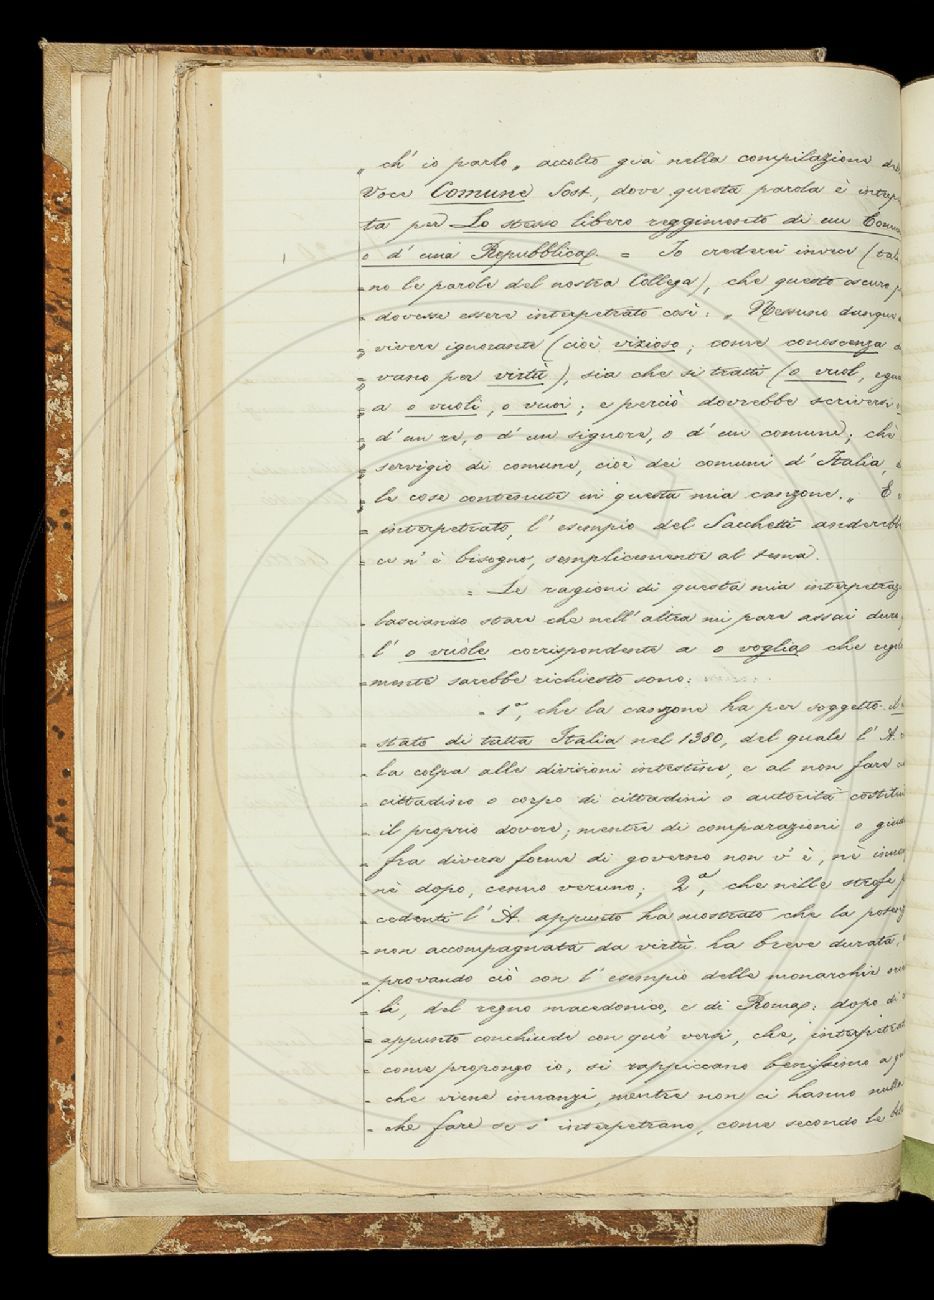 „ ch' io parlo „ accolto già nella compilazione del
Voce Comune Sost., dove questa parola è interp
ta per Lo stesso libero reggimento di un Comun
o d' una Repubblica. = Io crederei invece (
no le parole del nostro Collega), che questo oscuro p
dovesse essere interpetrato così: „ Nessuno dunque
vivere ignorante (cioè vizioso; come conoscenza
vano per virtù), sia che si tratti (o vuol, egua
a o vuoli, o vuoi; e perciò dovrebbe scriversi
d' un re, o d' un signore, o d' un comune; chè
servigio di comune, cioè dei comuni d' Italia,
le cose contenute in questa mia canzone. „ E
interpetrato, l' esempio del Sacchetti anderebb
ce n' è bisogno, semplicemente al tema.
= Le ragioni di questa mia interpetraz
lasciando stare che nell' altra mi pare assai duro
l' o vuole corrispondente a o voglia che
mente sarebbe richiesto sono:
= 1°, che la canzone ha per soggetto lo
stato di tutta Italia nel 1380, del quale l' A.
la colpa alle divisioni intestine, e al non fare
cittadino o corpo di cittadini o autorità costitui
il proprio dovere; mentre di comparazioni o giud
fra diverse forme di governo non v' è, nè innan
nè dopo, cenno veruno; 2°, che nelle strofe p
cedenti l' A. appunto ha mostrato che la potenz
non accompagnata da virtù ha breve durata,
provando ciò con l' esempio delle monarchie orien
li, del regno macedonico, e di Roma: dopo di
appunto conchiude con que' versi, che, interpetrat
come propongo io, si rappiccano benissimo a qu
che viene innanzi, mentre non ci hanno nulla
che fare se s' interpetrano, come secondo le